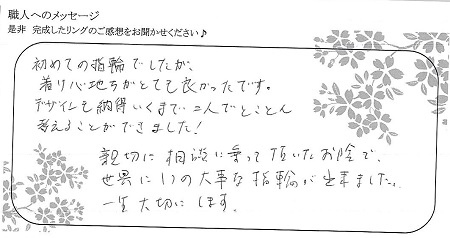 職人へのメッセージ
是非 完成したリングのご感想をお聞かせください♪
初めての指輪でしたが、
着け心地もとても良かったです。
デザインも納得いくまで二人でとことん
考えることができました!
親切に相談に乗って頂いたお陰で、
世界に1つの大事な指輪が出来ました。
一生大切にします。